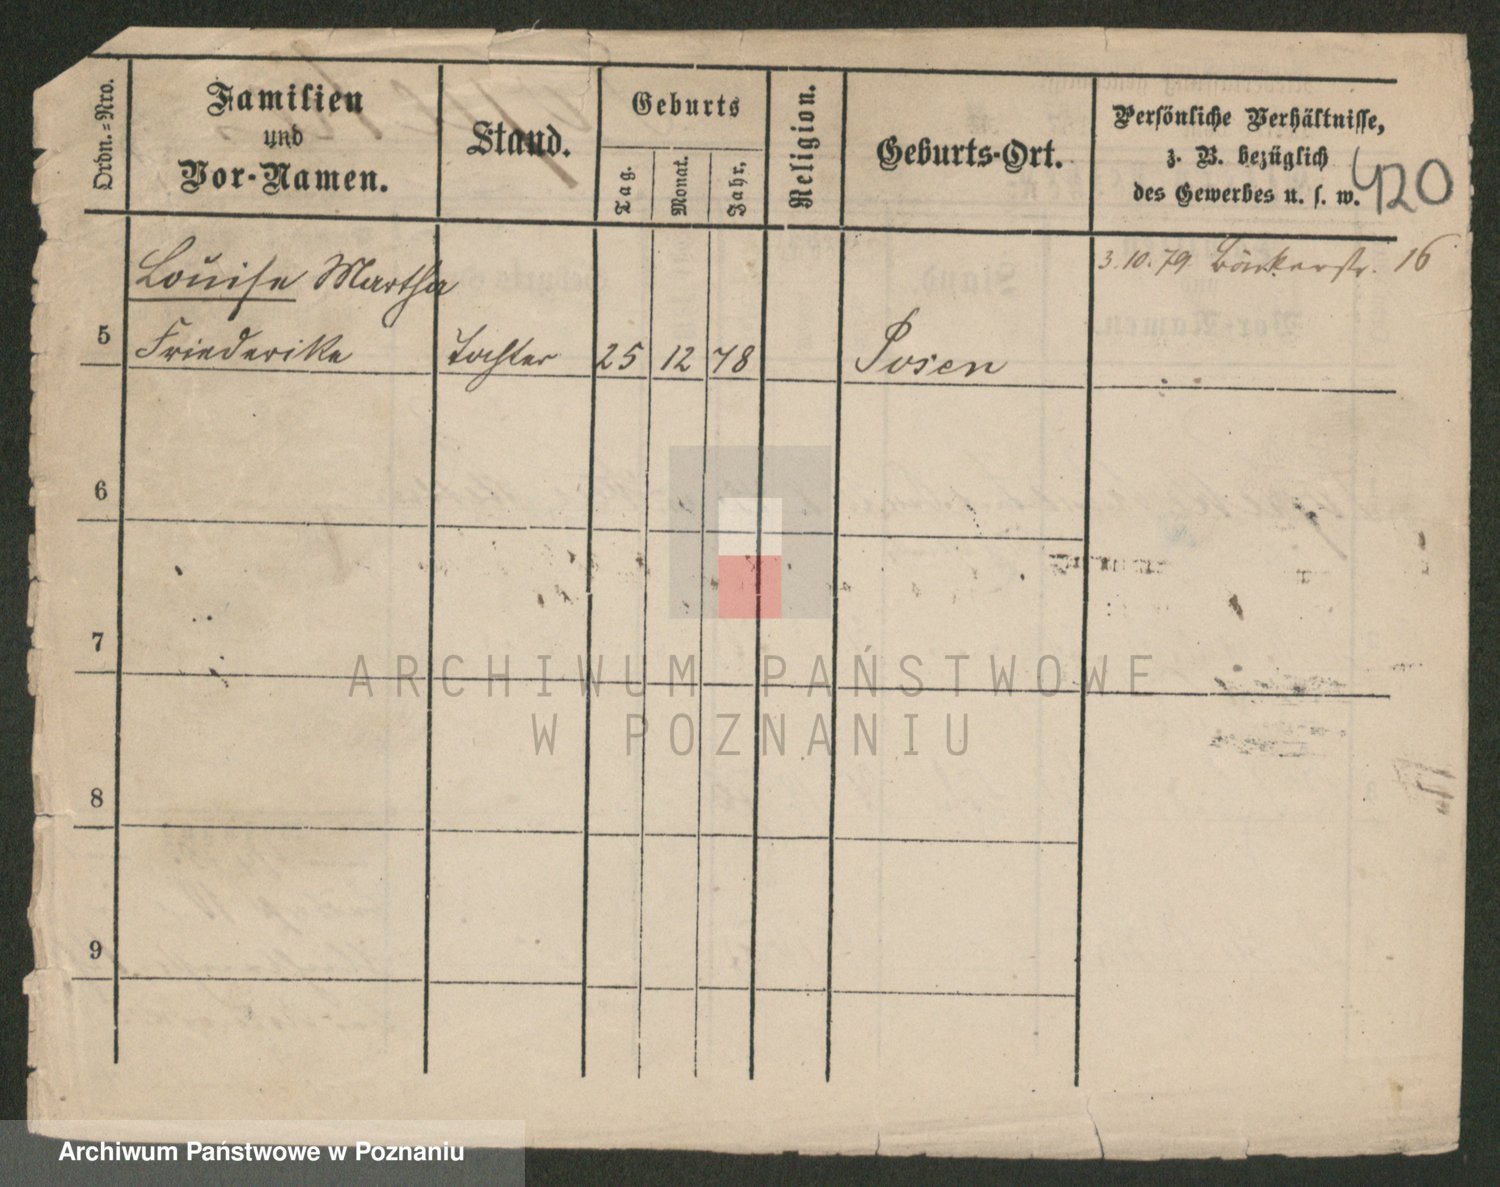 Ordn.=Nro.
Familien
und
Vor-Namen.
Stand.
Geburts
Tag.
Monat.
Jahr,
Religion.
Geburts-Ort.
Persönliche Verhältnisse,
z. B. bezüglich
des Gewerbes u. s. w.
420
3.10.79 Bäckerstr. 16
Louise Martha
5 Friederike Tochter 25 12 78 Posen
6
7
8
9
ARCHIWUM PAŃSTWOWE
W POZNANIU
Archiwum Państwowe w Poznaniu